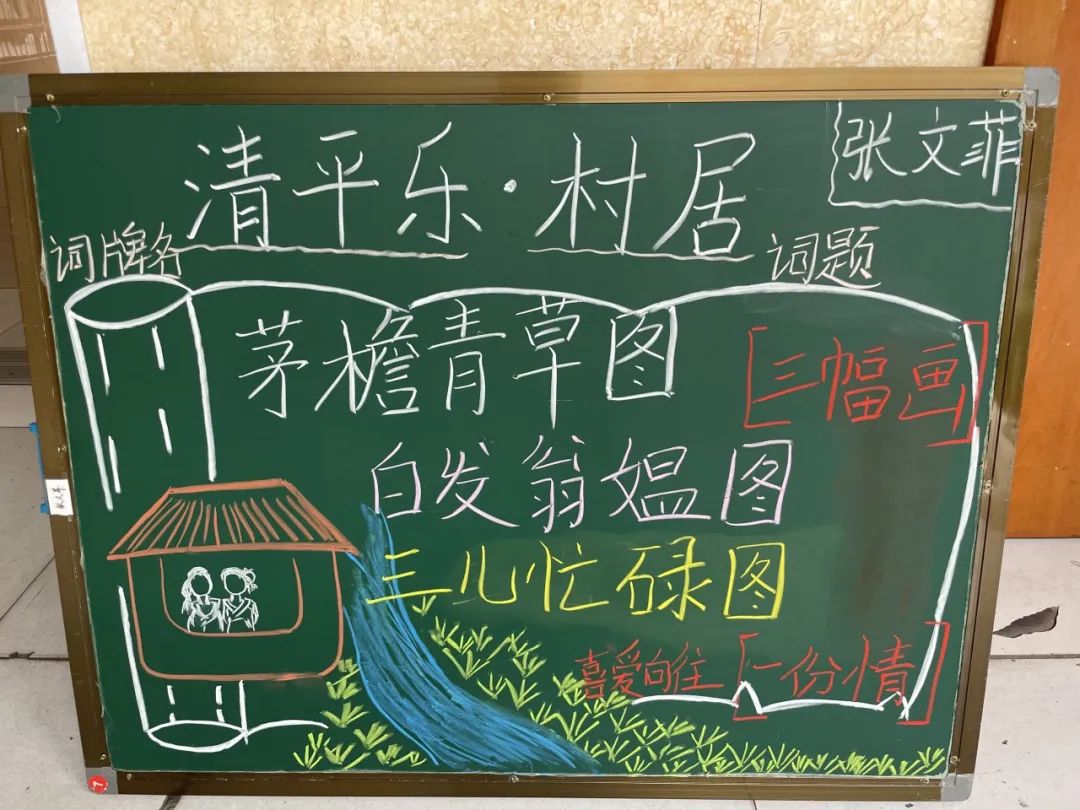 张文菲
清平乐·村居
词牌名
词题
茅檐青草图
[三幅画]
白发翁媪图
三儿忙碌图
喜爱向往[一份情]